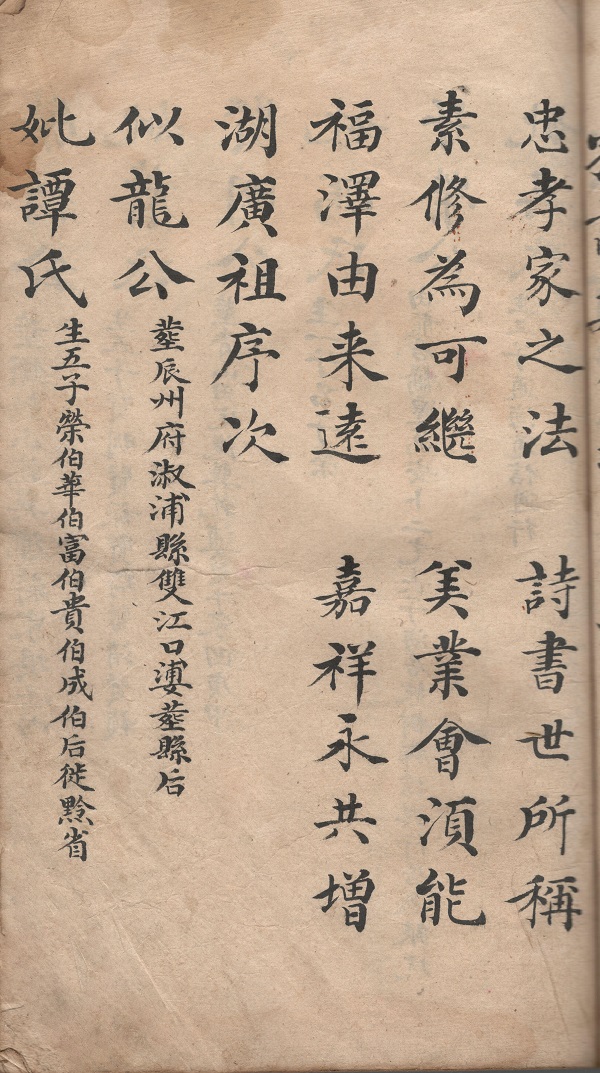 忠孝家之法 詩書世所稱
素修為可繼 美業會須能
福澤由来遠 嘉祥永共增
湖廣祖序次
似龍公 葬辰州府淑浦縣雙江口 葬縣后
妣譚氏 生五子榮伯華伯富伯貴伯成伯后徙黔省